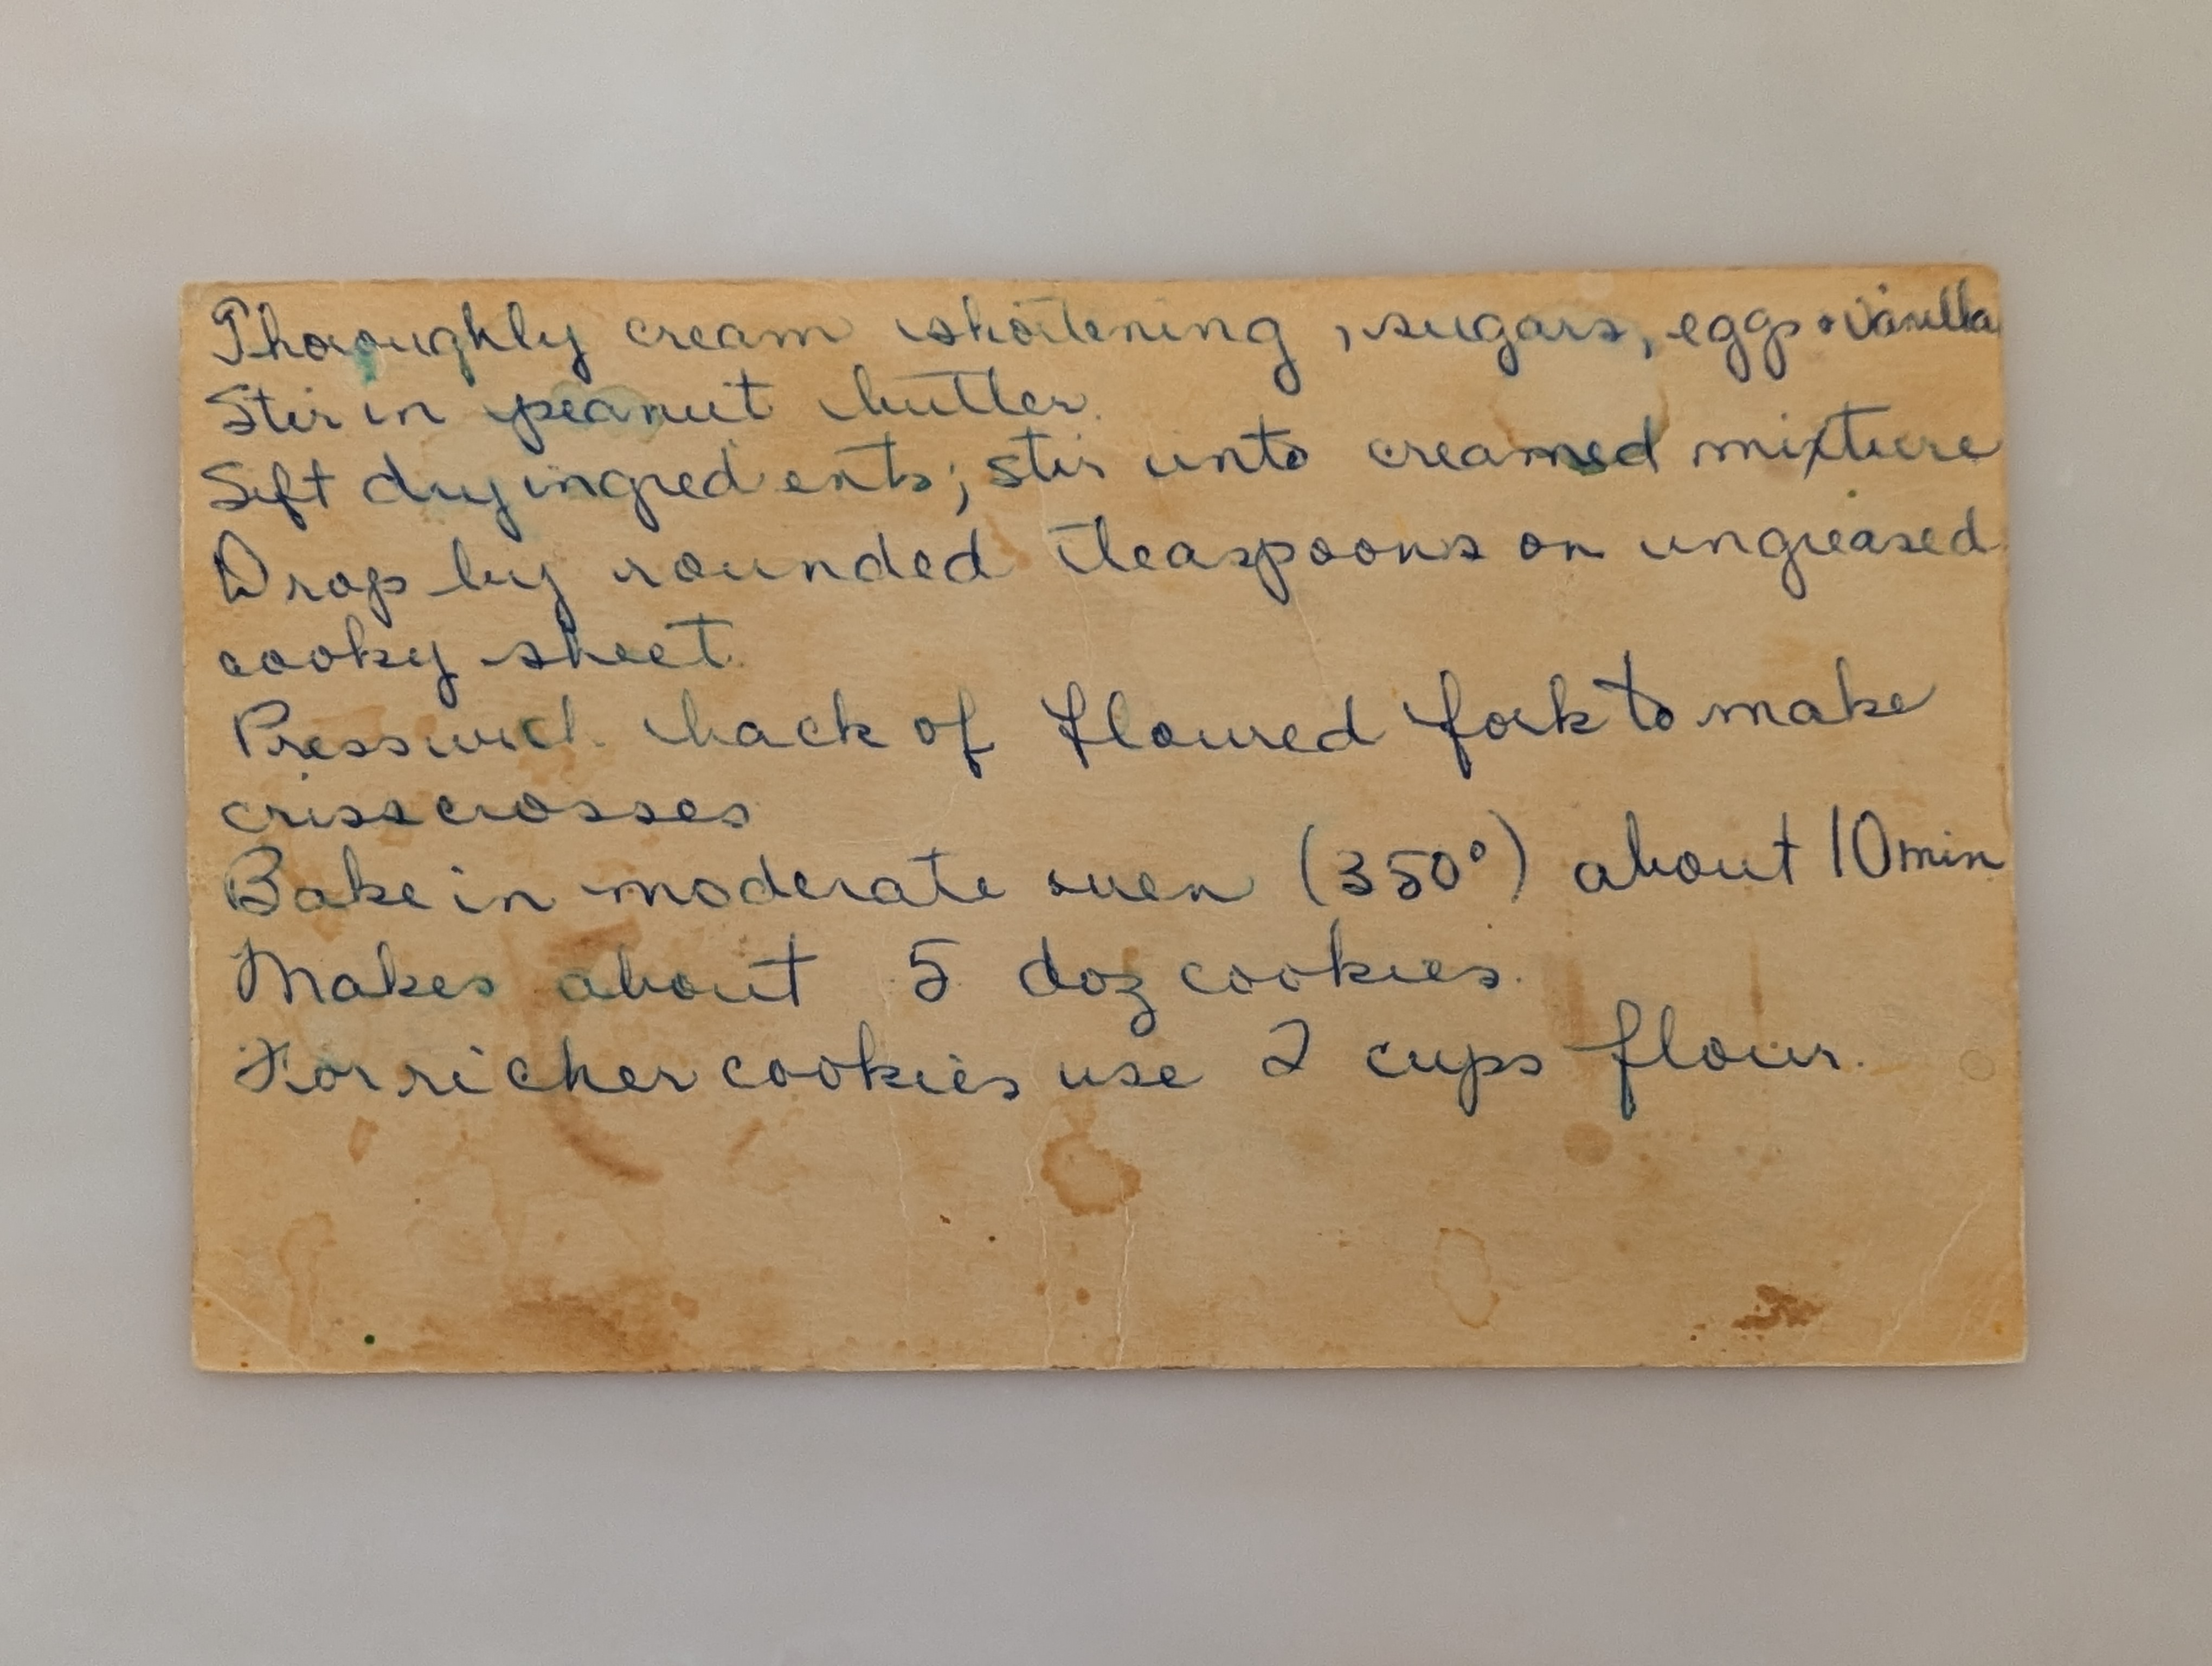 Thoroughly cream shortening, sugars, eggs & vanilla
Stir in peanut butter.
Sift dry ingredients; stir into creamed mixture
Drop by rounded teaspoons on ungreased
cooky sheet.
Press with back of floured fork to make
crisscrosses
Bake in moderate oven (350°) about 10 min
Makes about 5 doz cookies.
For richer cookies use 2 cups flour.